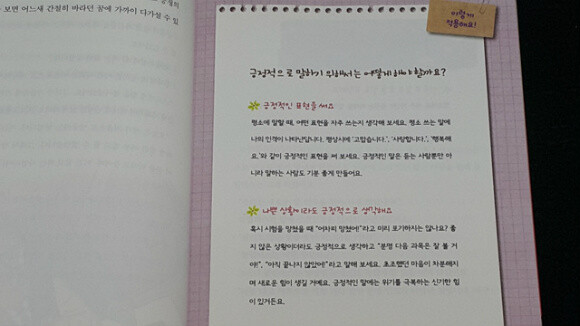 보면 어느새 간절히 바라던 꿈에 가까이 다가설 수 있
이렇게
적용해요!
긍정적으로 말하기 위해서는 어떻게 해야 할까요?
긍정적인 표현을 써요
평소에 말할 때, 어떤 표현을 자주 쓰는지 생각해 보세요. 평소 쓰는 말에
나의 인격이 나타난답니다. 평상시에 '고맙습니다.', '사랑합니다.', '행복해
요.'와 같이 긍정적인 표현을 써 보세요. 긍정적인 말은 듣는 사람뿐만 아
니라 말하는 사람도 기분 좋게 만들어요.
나쁜 상황이라도 긍정적으로 생각해요
혹시 시험을 망쳤을 때 "어차피 망쳤어!"라고 미리 포기하지는 않나요? 좋
지 않은 상황이더라도 긍정적으로 생각하고 "분명 다음 과목은 잘 볼 거
야!", "아직 끝나지 않았어!"라고 말해 보세요. 초조했던 마음이 차분해지
며 새로운 힘이 생길 거예요. 긍정적인 말에는 위기를 극복하는 신기한 힘
이 있거든요.